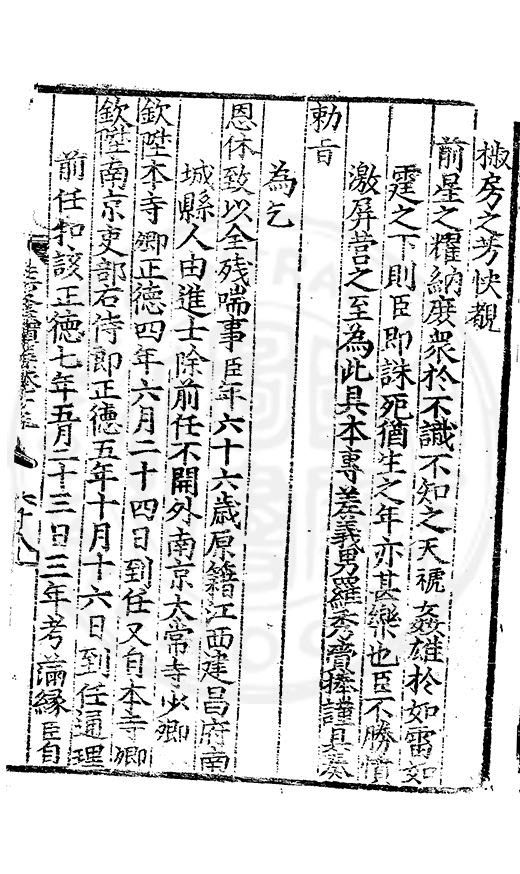 椒房之芳快覩
前星之耀納庶衆於不識不知之天褫姦雄於如雷如
霆之下則臣即誅死猶生之年亦甚樂也臣不勝憤
激屏營之至為此具本專差義男羅秀賫捧謹具奏
勑旨
為乞
恩休致以全残喘事臣年六十六歲原籍江西建昌府南
城縣人由進士除前任不開外南京太常寺少卿
欽陞本寺卿正德四年六月二十四日到任又自本寺卿
欽陞南京吏部右侍郎正德五年十月十六日到任通理
前任扣該正德七年五月二十三日三年考滿緣臣自